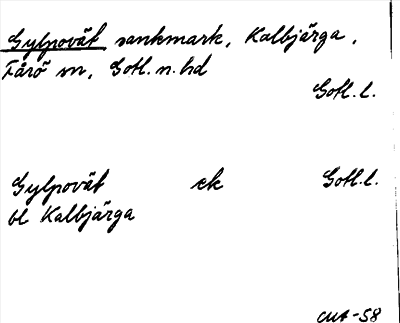 Gylpovät sankmark, Kalbjärga,
Fårö sn, Gotl. n. hd
Gotl. l.
Gylpovät ek Gotl. l.
bl Kalbjärga
CWA-58